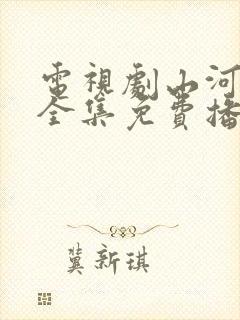 電視劇山河
全集免費播
冀新琪